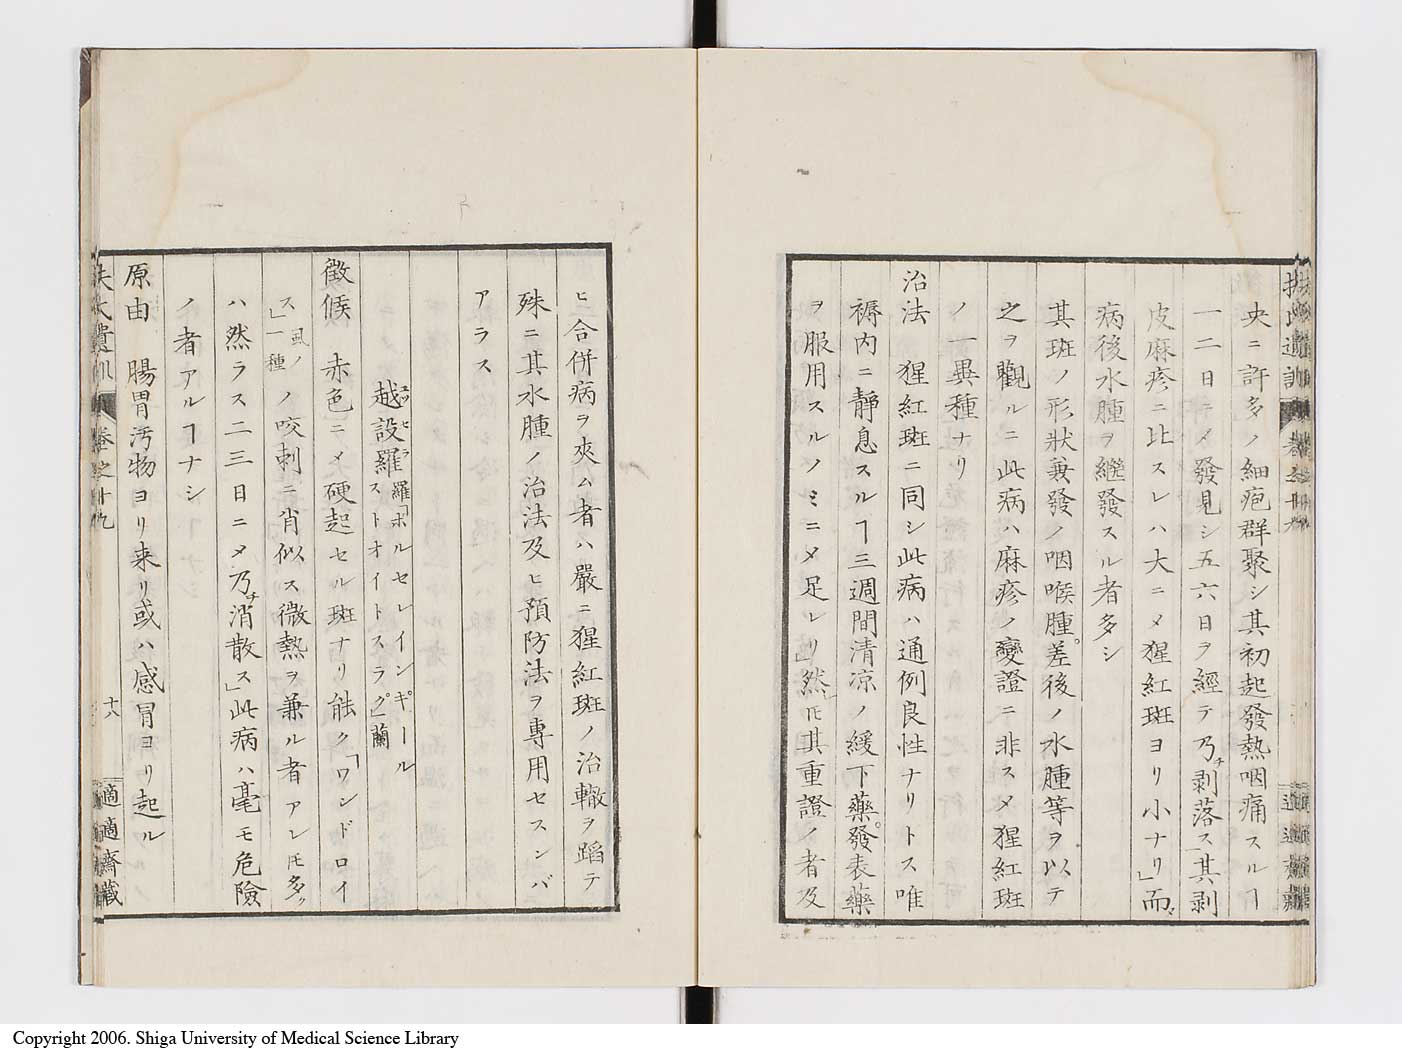 央ニ許多ノ細疱群聚シ其初起發熱咽痛スルヿ
一二日ニメ發見シ五六日ヲ經テ乃チ剥落ス」其剥
皮麻疹ニ比スレハ大ニメ猩紅斑ヨリ小ナリ」而
病後水腫ヲ繼發スル者多シ
其斑ノ形狀兼發ノ咽喉腫。差後ノ水腫等ヲ以テ
之ヲ觀ルニ此病ハ麻疹ノ變證ニ非スメ猩紅斑
ノ一異種ナリ
治法 猩紅斑ニ同シ此病ハ通例良性ナリトス唯
褥内ニ靜息スルヿ三週間清凉ノ緩下藥。發表藥
ヲ服用スルノミニメ足レリ」然𪜈其重證ノ者及
ヒ合併病ヲ夾ム者ハ嚴ニ猩紅斑ノ治轍ヲ蹈テ
殊ニ其水腫ノ治法及ヒ預防法ヲ專用セスンバ
アラス
越設羅 羅「ポルセレインギール
ストオイトスラグ」蘭
徴候 赤色ニメ硬起セル斑ナリ能ク「ワンドロイ
ス」風ノ一種ノ咬刺ニ肖似ス微熱ヲ兼ル者アレ𪜈多ク
ハ然ラス二三日ニメ乃チ消散ス」此病ハ毫モ危險
ノ者アルヿナシ
原由 腸胃汚物ヨリ来リ或ハ感冒ヨリ起ル
扶氏遺訓 卷之十九 十八 適適齋藏
Copyright 2006. Shiga University of Medical Science Library